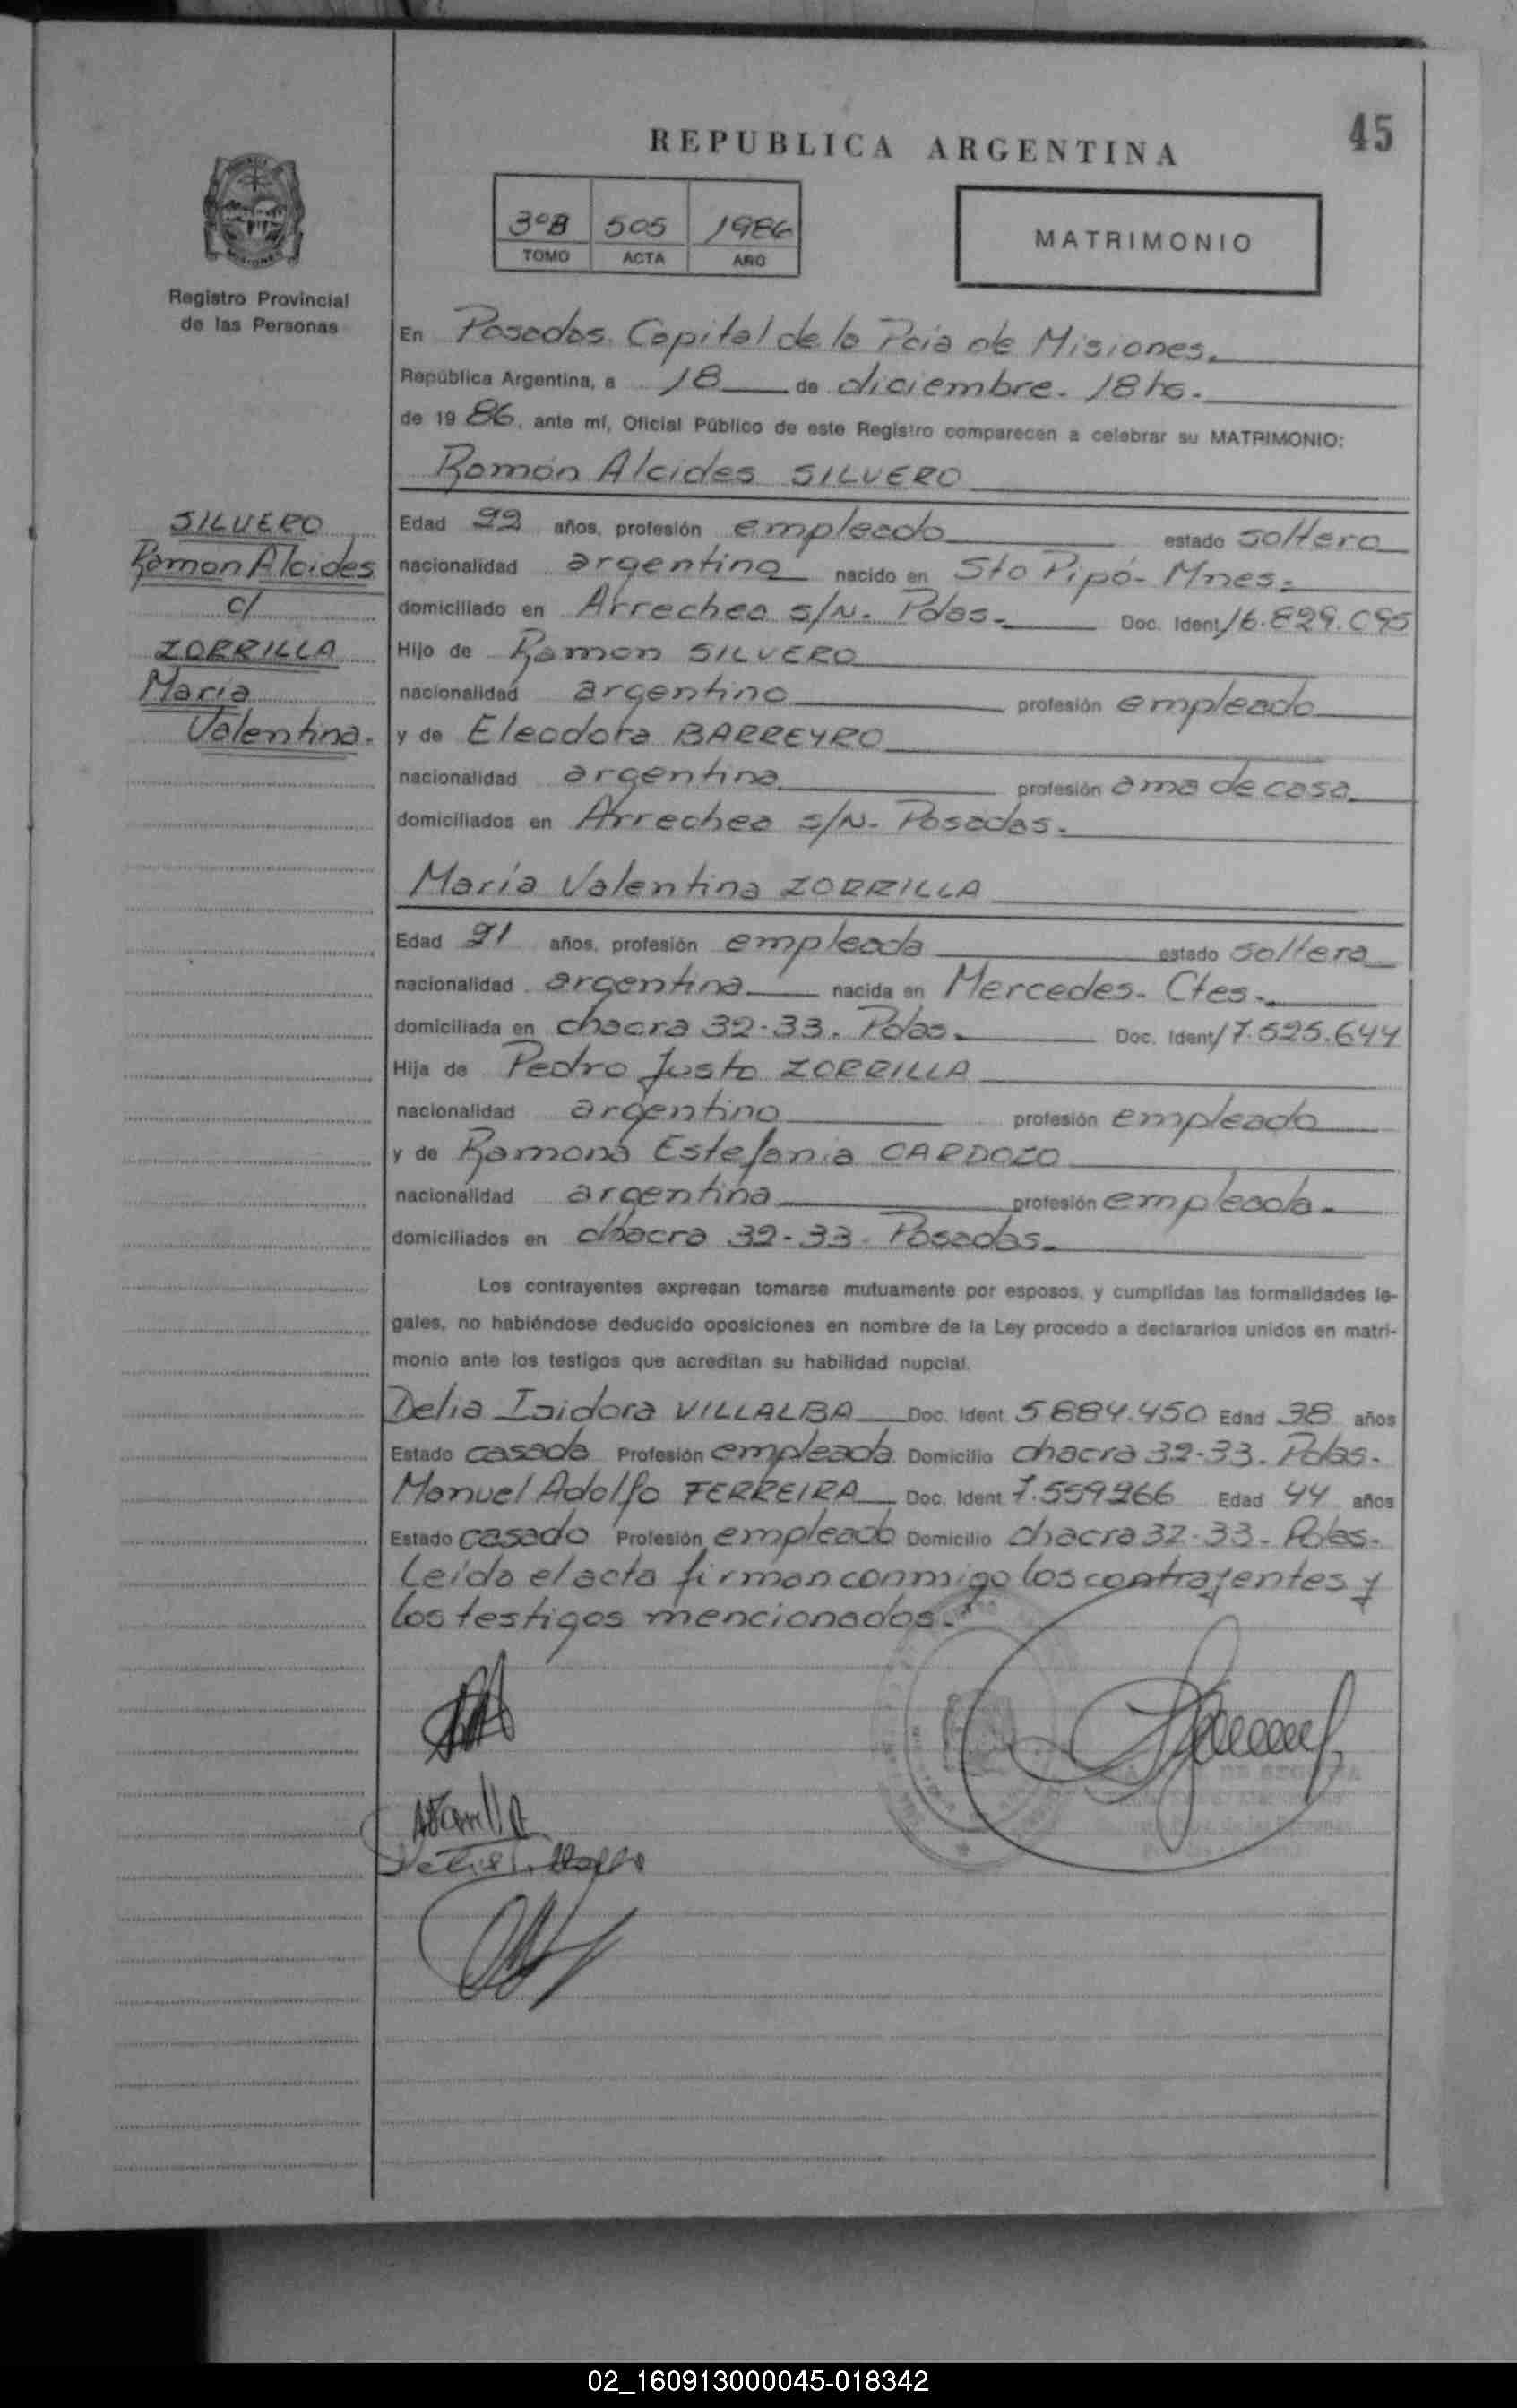 45
REPUBLICA ARGENTINA
3ºB 505 1986
TOMO ACTA AÑO
MATRIMONIO
Registro Provincial
de las Personas
En Posadas. Capital de la Pcia de Misiones.
República Argentina, a 18 de diciembre. 18 hs.
de 1986, ante mí, Oficial Público de este Registro comparecen a celebrar su MATRIMONIO:
Ramón Alcides SILVERO
SILVERO
Ramon Alcides
c/
ZORRILLA
Maria
Valentina.
Edad 22 años, profesión empleado estado soltero
nacionalidad argentino nacido en Sto Pipó- Mnes.
domiciliado en Arrechea s/N. Pdas. Doc. Ident. 16.829.095
Hijo de Ramon SILVERO
nacionalidad argentino profesión empleado
y de Eleodora BARREYRO
nacionalidad argentina profesión ama de casa
domiciliados en Arrechea s/N- Posadas.
María Valentina ZORRILLA
Edad 21 años, profesión empleada estado soltera
nacionalidad argentina nacida en Mercedes- Ctes.
domiciliada en chacra 32-33. Pdas. Doc. Ident. 17.525.644
Hija de Pedro Justo ZORRILLA
nacionalidad argentino profesión empleado
y de Ramona Estefania CARDOZO
nacionalidad argentina profesión empleada.
domiciliados en chacra 32-33. Posadas.
Los contrayentes expresan tomarse mutuamente por esposos, y cumplidas las formalidades le-
gales, no habiéndose deducido oposiciones en nombre de la Ley procedo a declararlos unidos en matri-
monio ante los testigos que acreditan su habilidad nupcial.
Delia Isidora VILLALBA Doc. Ident. 5884.450 Edad 38 años
Estado casada Profesión empleada Domicilio chacra 32-33. Pdas.
Manuel Adolfo FERREIRA Doc. Ident. 7.559266 Edad 44 años
Estado casado Profesión empleado Domicilio chacra 32-33- Pdas.
Leída el acta firman conmigo los contrayentes y
los testigos mencionados.
02_160913000045-018342